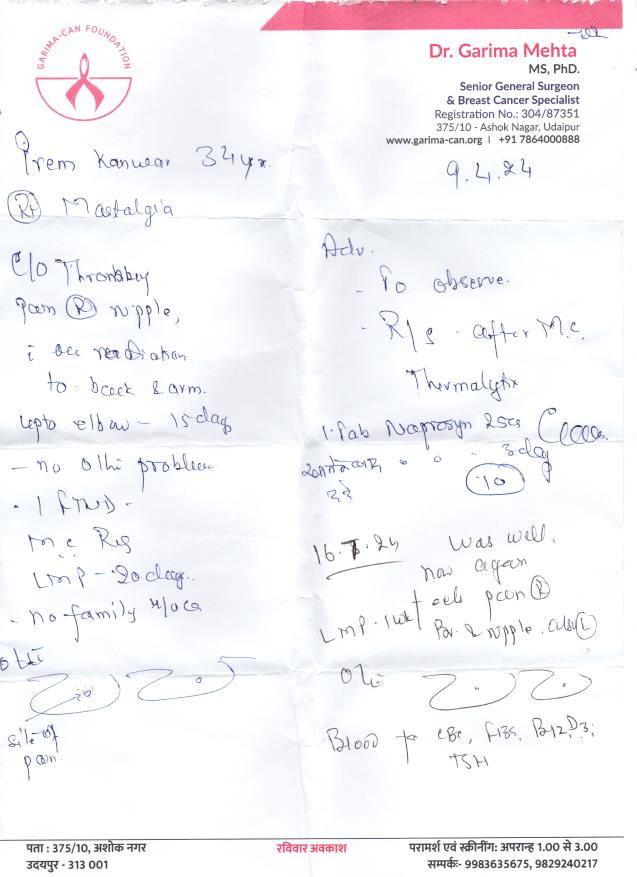 GARIMA-CAN FOUNDATION
Dr. Garima Mehta
MS, PhD.
Senior General Surgeon
& Breast Cancer Specialist
Registration No.: 304/87351
375/10 - Ashok Nagar, Udaipur
www.garima-can.org | +91 7864000888
Prem Kanwar 34 yr.
9.4.24
Rt Mastalgia
C/o Throbbing
pain R nipple,
radiation
to back & arm.
upto elbow - 15 day
- no other problem
. 1 FTND -
M.C Reg
LMP - 20 day.
- no family H/o Ca
O/E
site of
pain
Adv.
- To observe.
- R/s - after M.C.
Thermalytix
1. Tab Naprosyn 250
खाने के बाद 3 day
10
16.7.24 Was well.
now again
feels pain R
LMP - 1
Br. & nipple. also L
O/E
Blood for CBC, FBS, B12, D3,
TSH
पता : 375/10, अशोक नगर
उदयपुर - 313 001
रविवार अवकाश
परामर्श एवं स्क्रीनींग: अपरान्ह 1.00 से 3.00
सम्पर्क:- 9983635675, 9829240217